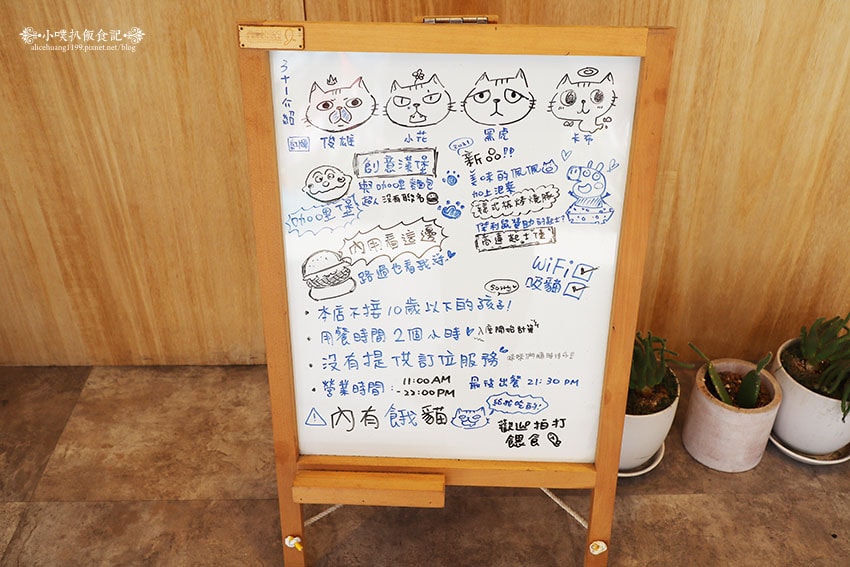 小噗扒飯食記
alicehuang1199.pixnet.net/blog
3+1介紹
俊雄
小花
黑虎
卡布
創意漢堡
與咖哩麵包
超人沒有聯名
咖哩堡
新品!!
美味的佩佩
加上泡菜
韓式
內用看這邊
路過也看我呀
起士堡
WiFi
吸貓
sorry
本店不接10歲以下的孩子!
用餐時間2個小時 入座開始計算
沒有提供訂位服務
營業時間: 11:00AM
-22:00PM
最後出餐 21:30 PM
內有餓貓
歡迎拍打
餵食